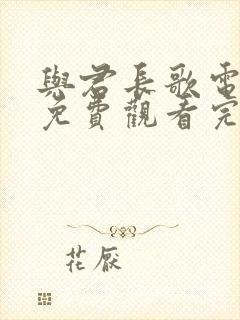 與君長歌電
免費觀看完
花厭